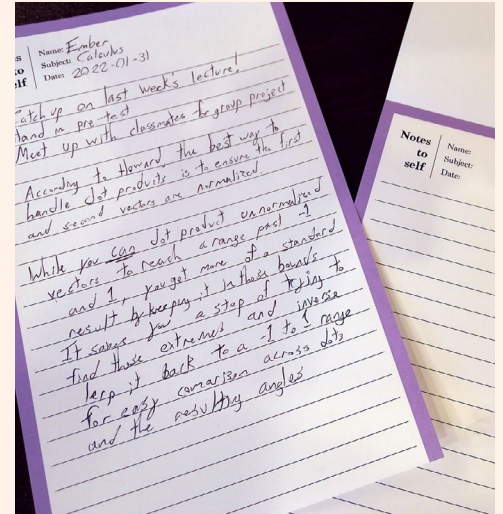 s
to
elf
Name: Ember
Subject: Calculus
Date: 2022-01-31
atch up on last week's lecture!
Hand in pre-test
Meet up with classmates for group project
According to Howard the best way to
handle dot products is to ensure the first
and second vectors are normalized.
While you can dot product unnormalized
vectors to reach a range past -1
and 1, you get more of a standard
result by keeping it in those bounds
It saves you a step of trying to
find those extremes and inverse
lerp it back to a -1 to 1 range
for easy comarison across dots
and the resulting angles
Notes
to
self
Name:
Subject:
Date: